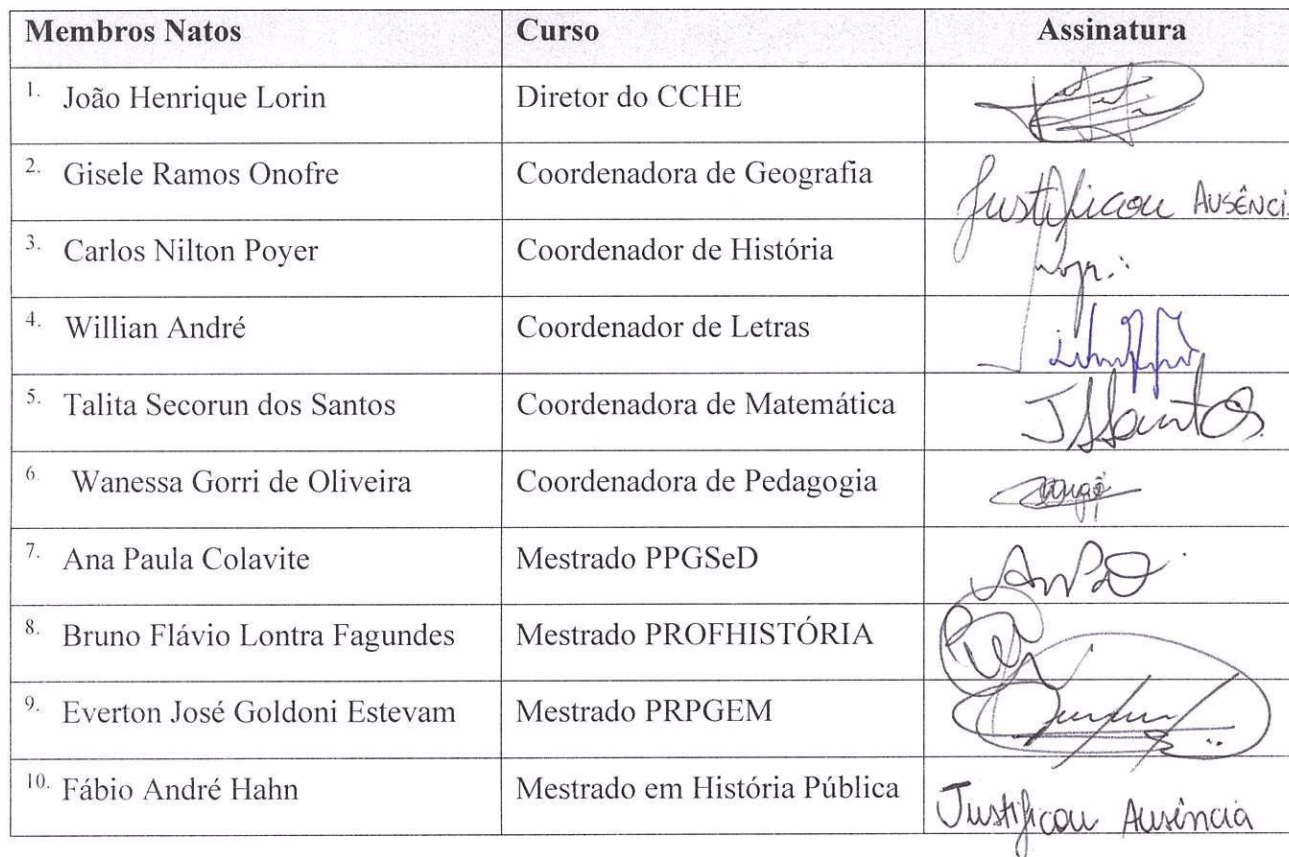 Membros Natos Curso Assinatura
1. João Henrique Lorin Diretor do CCHE
2. Gisele Ramos Onofre Coordenadora de Geografia Justificou AUSÊNCI
3. Carlos Nilton Poyer Coordenador de História
4. Willian André Coordenador de Letras
5. Talita Secorun dos Santos Coordenadora de Matemática TSSantos
6. Wanessa Gorri de Oliveira Coordenadora de Pedagogia
7. Ana Paula Colavite Mestrado PPGSeD
8. Bruno Flávio Lontra Fagundes Mestrado PROFHISTÓRIA
9. Everton José Goldoni Estevam Mestrado PRPGEM
10. Fábio André Hahn Mestrado em História Pública Justificou Ausência